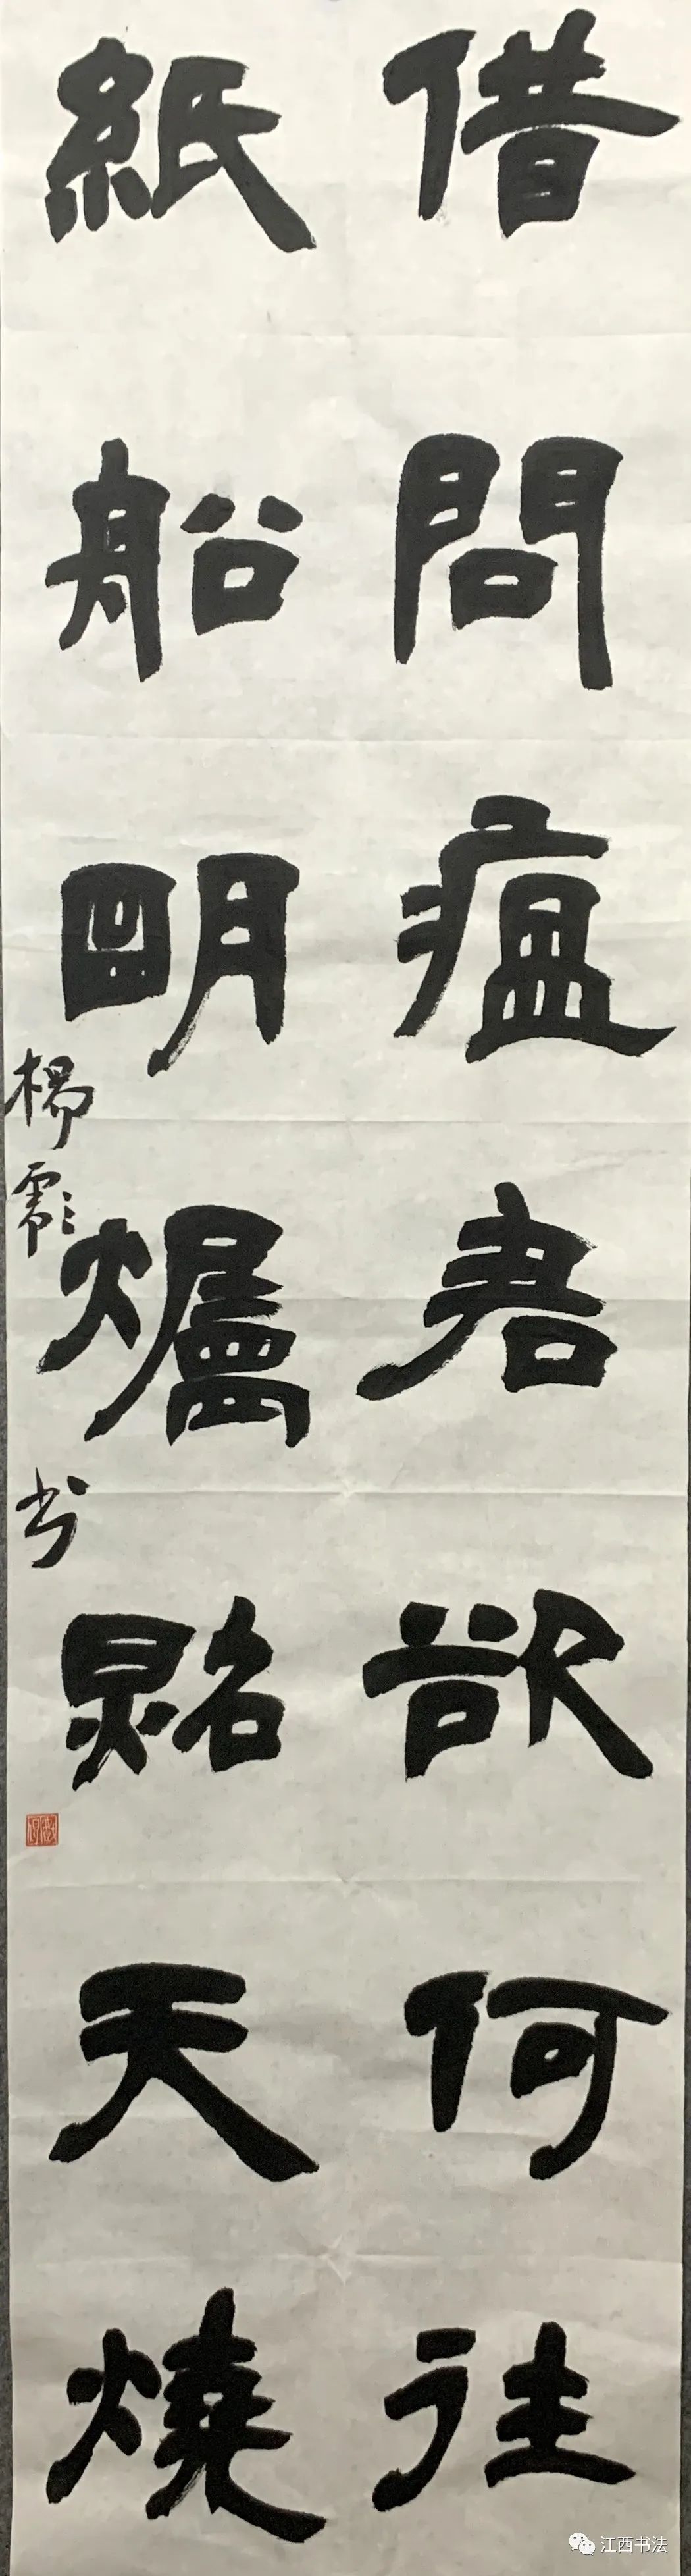 借問瘟君欲何往
紙船明燭照天燒
楊
书
江西书法